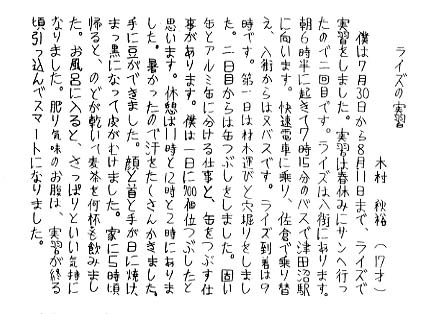 ライズの実習
木村 秋裕 (17才)
僕は7月30日から8月11日まで、ライズで
実習をしました。実習は春休みにサンへ行っ
たので二回目です。ライズは八街にあります。
朝6時半に起きて7時15分のバスで津田沼駅
に向います。快速電車に乗り、佐倉で乗り替
え、八街からは又バスです。ライズ到着は9
時です。第一日は材木運びと穴堀りをしまし
た。二日目からは缶つぶしをしました。固い
缶とアルミ缶に分ける仕事と、缶をつぶす仕
事があります。僕は一日に700個位つぶしたと
思います。休憩は11時と12時と2時にありま
した。暑かったので汗をたくさんかきました。
手に豆ができました。顔と首と手が日に焼け、
まっ黒になって皮がむけました。家に5時頃
帰ると、のどが乾いて麦茶を何杯も飲みまし
た。お風呂に入ると、さっぱりといい気持に
なりました。肥り気味のお腹は、実習が終る
頃引っ込んでスマートになりました。